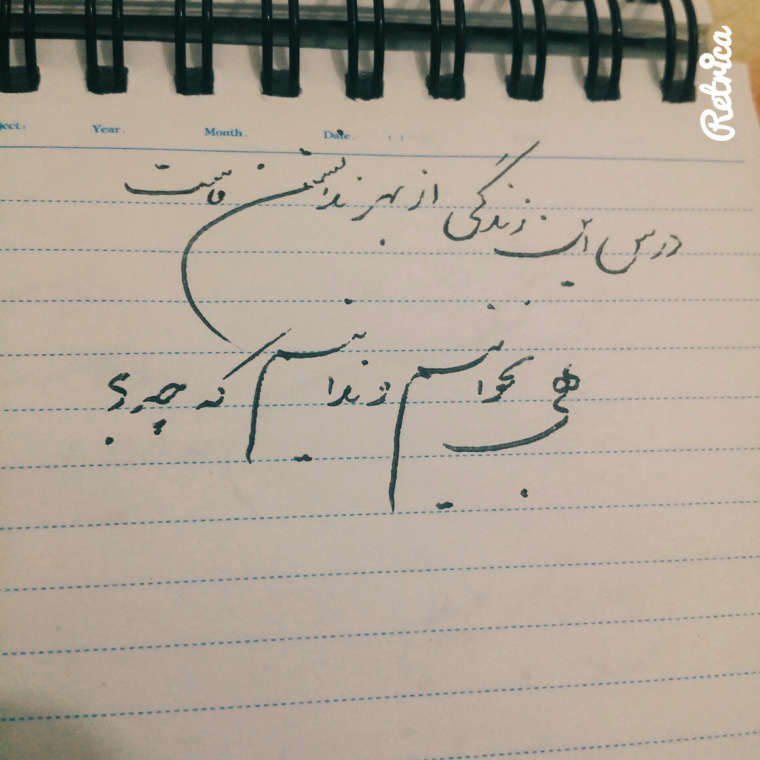 ject: Year. Month. Date. ( )
درس این زندگی از بهر ندانستن ماست
هی بخوانیم و ندانیم که چه؟
Retrica